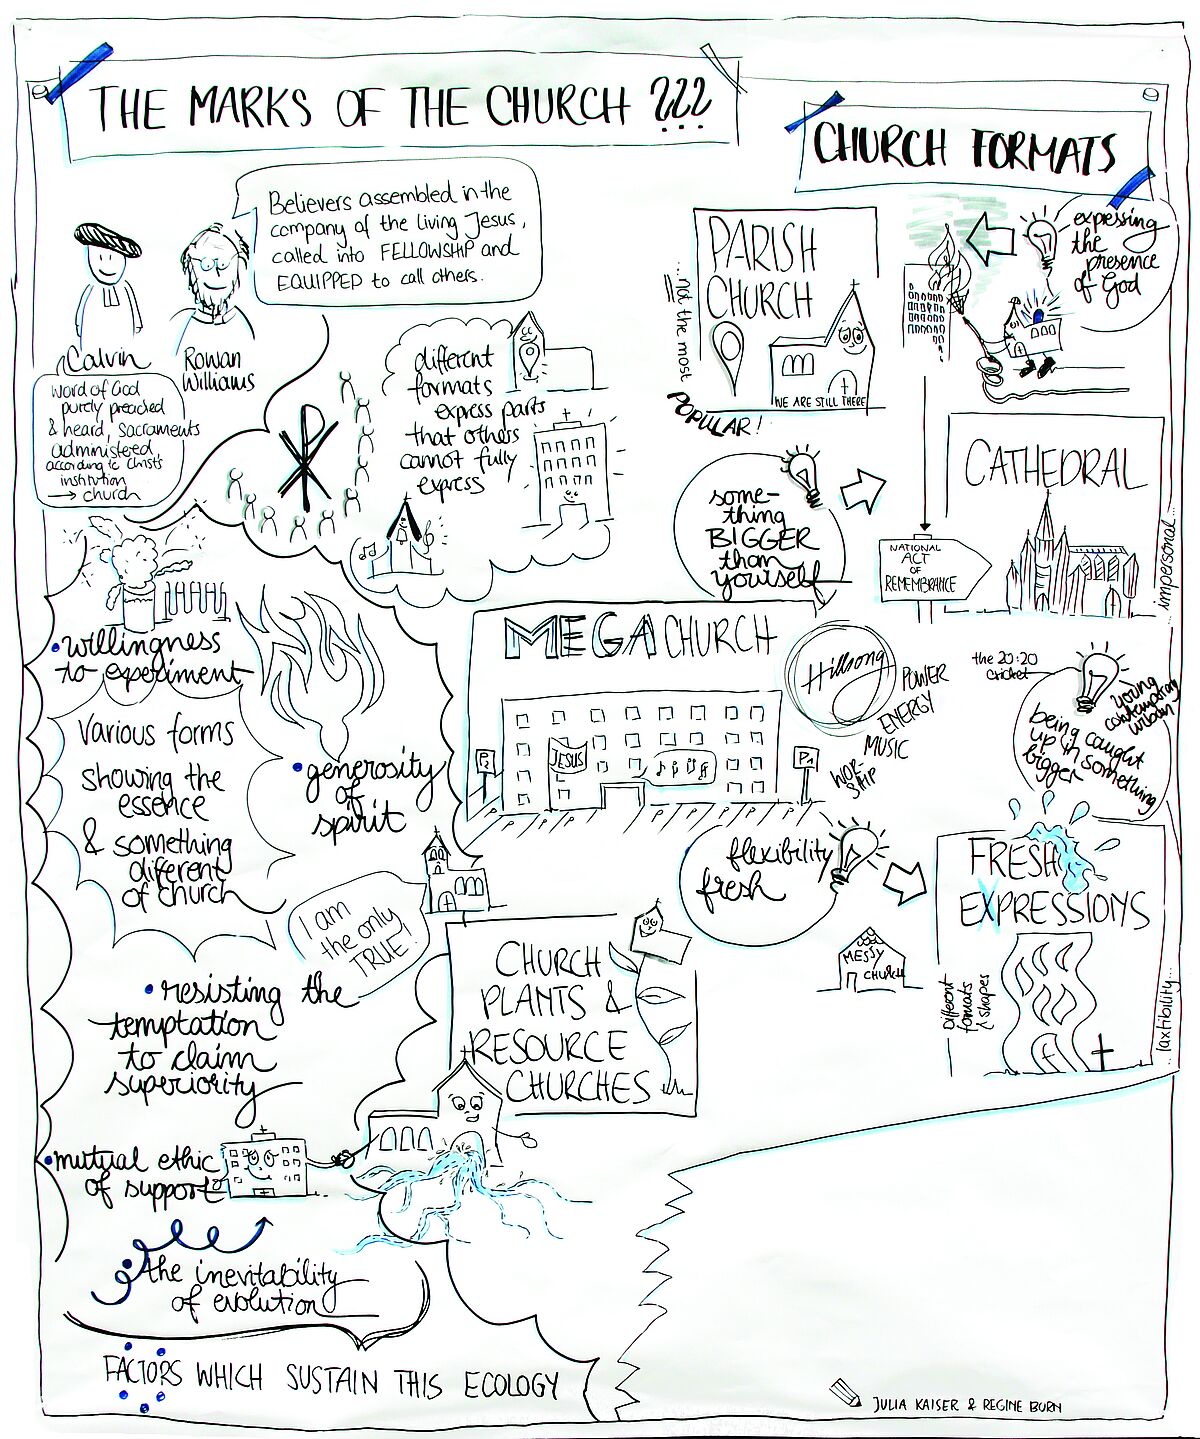 THE MARKS OF THE CHURCH ???
CHURCH FORMATS
Believers assembled in the
company of the living Jesus,
called into FELLOWSHIP and
EQUIPPED to call others.
Calvin
Rowan
Williams
Word of God
purely preached
& heard, Sacraments
administered
according to Christ's
institution
→ church
different
formats
express parts
that others
cannot fully
express
PARISH
CHURCH
...not the most
POPULAR!
WE ARE STILL THERE
expressing
the
presence
of God
some-
thing
BIGGER
than
yourself
NATIONAL
ACT
OF
REMEMBRANCE
CATHEDRAL
impersonal...
• willingness
to experiment
Various forms
showing the
essence
& something
different
of church
• generosity
of
spirit
MEGACHURCH
JESUS
P2
P1
P P P P
Hillsong
POWER
ENERGY
MUSIC
WOR-
SHIP
the 20:20
cricket
young
contemporary
urban
being caught
up in something
bigger
flexibility
fresh
FRESH
EXPRESSIONS
MESSY
CHURCH
Different
formats
& shapes
I am
the only
TRUE!
• resisting the
temptation
to claim
superiority
CHURCH
PLANTS &
RESOURCE
CHURCHES
• mutual ethic
of support
• the inevitability
of evolution
FACTORS WHICH SUSTAIN THIS ECOLOGY
JULIA KAISER & REGINE BORN